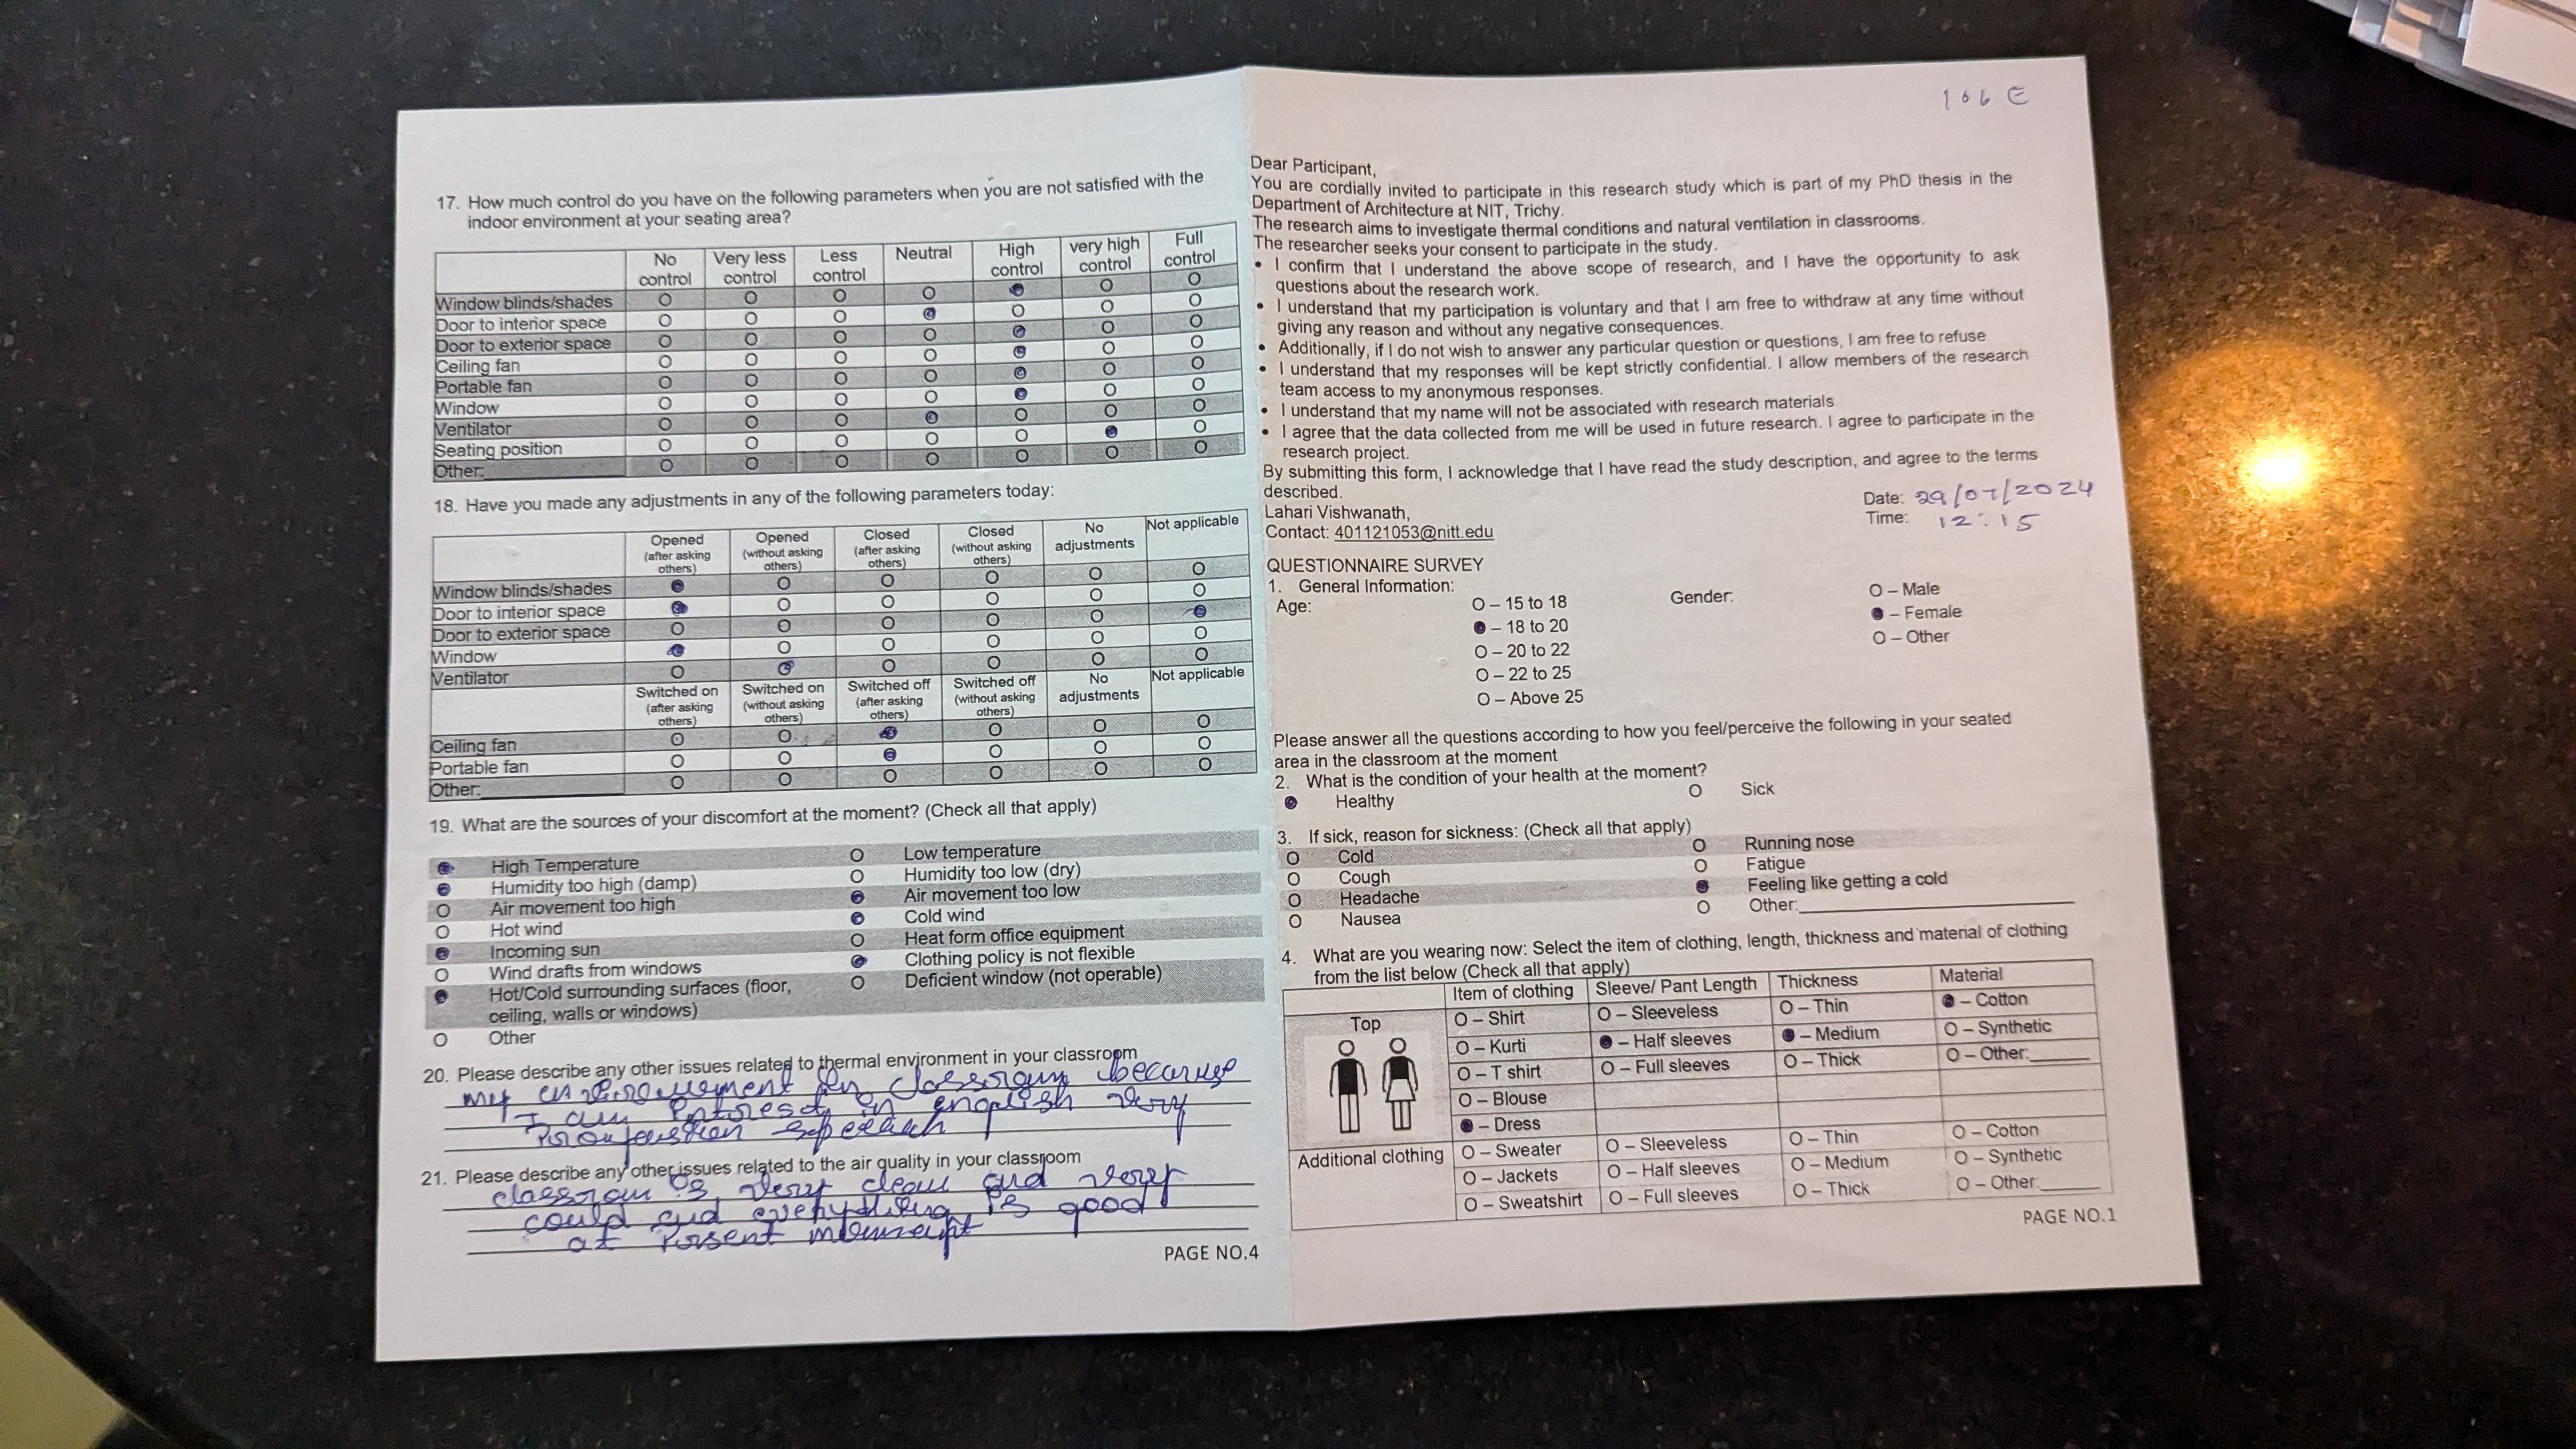 17. How much control do you have on the following parameters when you are not satisfied with the
indoor environment at your seating area?
No control Very less control Less control Neutral High control very high control Full control
Window blinds/shades O O O O O O
Door to interior space O O O O O O
Door to exterior space O O O O O O
Ceiling fan O O O O O O
Portable fan O O O O O O
Window O O O O O O
Ventilator O O O O O O
Seating position O O O O O O
Other: O O O O O O O
18. Have you made any adjustments in any of the following parameters today:
Opened (after asking others) Opened (without asking others) Closed (after asking others) Closed (without asking others) No adjustments Not applicable
Window blinds/shades O O O O O
Door to interior space O O O O O
Door to exterior space O O O O O
Window O O O O O
Ventilator O O O O O
Switched on (after asking others) Switched on (without asking others) Switched off (after asking others) Switched off (without asking others) No adjustments Not applicable
Ceiling fan O O O O O
Portable fan O O O O O
Other: O O O O O O
19. What are the sources of your discomfort at the moment? (Check all that apply)
High Temperature O Low temperature
Humidity too high (damp) O Humidity too low (dry)
O Air movement too high Air movement too low
O Hot wind Cold wind
Incoming sun O Heat form office equipment
O Wind drafts from windows Clothing policy is not flexible
Hot/Cold surrounding surfaces (floor, O Deficient window (not operable)
ceiling, walls or windows)
O Other
20. Please describe any other issues related to thermal environment in your classroom
my classroom because
I am in english very
21. Please describe any other issues related to the air quality in your classroom
classroom is very clean and very
could and everything is good
at
PAGE NO.4
106 E
Dear Participant,
You are cordially invited to participate in this research study which is part of my PhD thesis in the
Department of Architecture at NIT, Trichy.
The research aims to investigate thermal conditions and natural ventilation in classrooms.
The researcher seeks your consent to participate in the study.
• I confirm that I understand the above scope of research, and I have the opportunity to ask
questions about the research work.
• I understand that my participation is voluntary and that I am free to withdraw at any time without
giving any reason and without any negative consequences.
• Additionally, if I do not wish to answer any particular question or questions, I am free to refuse
• I understand that my responses will be kept strictly confidential. I allow members of the research
team access to my anonymous responses.
• I understand that my name will not be associated with research materials
• I agree that the data collected from me will be used in future research. I agree to participate in the
research project.
By submitting this form, I acknowledge that I have read the study description, and agree to the terms
described.
Lahari Vishwanath,
Contact: 401121053@nitt.edu
Date: 29/07/2024
Time: 12:15
QUESTIONNAIRE SURVEY
1. General Information:
Age: O – 15 to 18 Gender: O – Male
– 18 to 20 – Female
O – 20 to 22 O – Other
O – 22 to 25
O – Above 25
Please answer all the questions according to how you feel/perceive the following in your seated
area in the classroom at the moment
2. What is the condition of your health at the moment?
Healthy O Sick
3. If sick, reason for sickness: (Check all that apply)
O Cold O Running nose
O Cough O Fatigue
O Headache Feeling like getting a cold
O Nausea O Other:
4. What are you wearing now: Select the item of clothing, length, thickness and material of clothing
from the list below (Check all that apply)
Item of clothing Sleeve/ Pant Length Thickness Material
Top O – Shirt O – Sleeveless O – Thin – Cotton
O – Kurti – Half sleeves – Medium O – Synthetic
O – T shirt O – Full sleeves O – Thick O – Other:
O – Blouse
– Dress
Additional clothing O – Sweater O – Sleeveless O – Thin O – Cotton
O – Jackets O – Half sleeves O – Medium O – Synthetic
O – Sweatshirt O – Full sleeves O – Thick O – Other:
PAGE NO.1